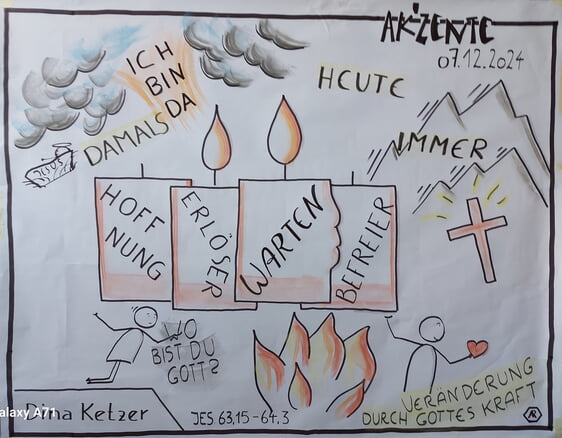 AKZENTE
07.12.2024
ICH
BIN
DA
HEUTE
DAMALS
IMMER
JESUS
HOFF
NUNG
ERLÖSER
WARTEN
BEFREIER
WO
BIST DU
GOTT?
VERÄNDERUNG
DURCH GOTTES KRAFT
Dina Ketzer
JES 63,15-64,3
AR
Galaxy A71